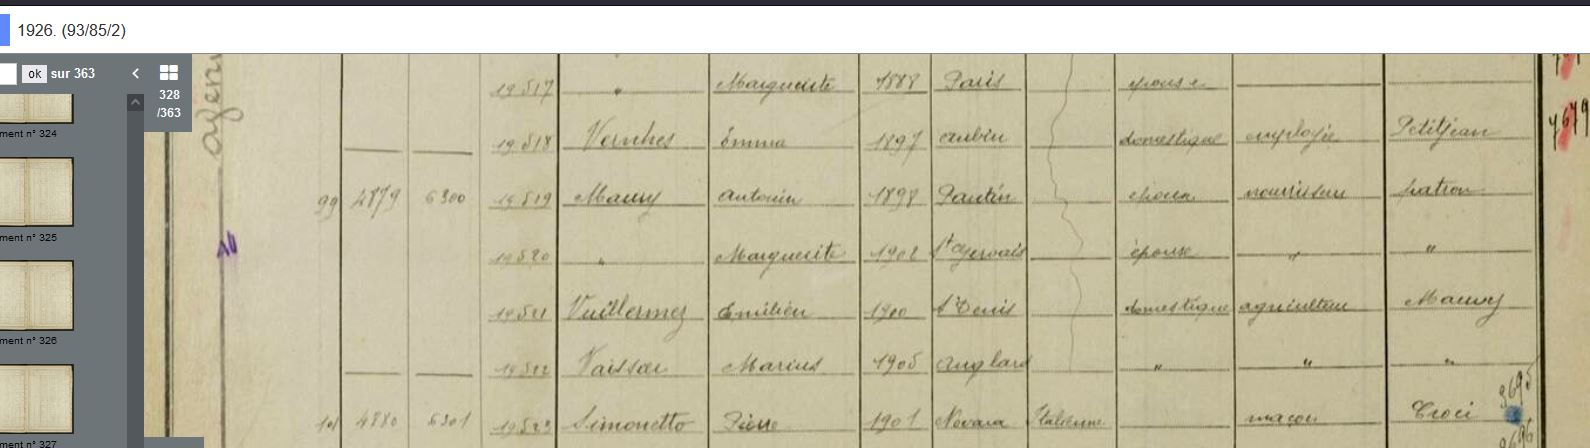 1926. (93/85/2)
ok sur 363
328
/363
ment n° 324
ment n° 325
ment n° 326
ment n° 327
19517 " Marguerite 1888 Paris épouse
19518 Vernhes Emma 1897 Aubin domestique employée Petitjean
99 4879 6300 19519 Maury Antonin 1898 Pantin époux nourrisseur patron
19520 " Marguerite St Gervais épouse " "
19521 Vuillermez Emilien 1900 St Denis domestique agriculteur Maury
19522 Marius 1905 Anglard " " "
101 4880 6301 19523 Simonetto Pierre 1901 Novara Italienne maçon Croci
3695
3696